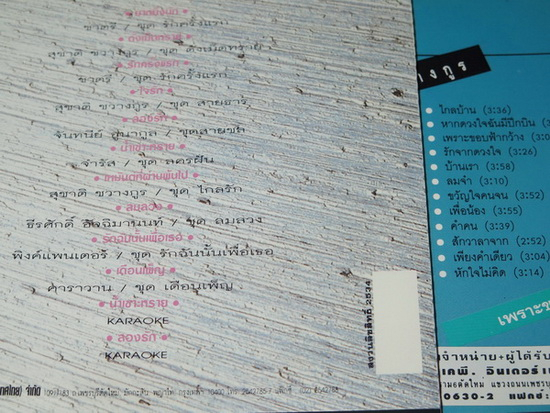 ชาตรี / ชุด รักครั้งแรก
สุชาติ ชวางกูร / ชุด ดั่งเม็ดทราย
รักครั้งแรก
ชาตรี / ชุด รักครั้งแรก
ใจรัก
สุชาติ ชวางกูร / ชุด สายธาร
ลองรัก
น้ำเซาะทราย
จำรัส / ชุด ละครฝัน
สุชาติ ชวางกูร / ชุด ไกลรัก
ลมลวง
ธีรศักดิ์ อัจฉิมานนท์ / ชุด ลมลวง
รักฉันนั้นเพื่อเธอ
พิงค์แพนเตอร์ / ชุด รักฉันนั้นเพื่อเธอ
เดือนเพ็ญ
คาราวาน / ชุด เดือนเพ็ญ
น้ำเซาะทราย
KARAOKE
ลองรัก
KARAOKE
สงวนลิขสิทธิ์ 2534
างกูร
ไกลบ้าน (3:36)
หากดวงใจฉันมีปีกบิน
เพราะขอบฟ้ากว้าง
รักจากดวงใจ (3:26)
บ้านเรา (3:58)
ลมจ๋า (3:10)
ขวัญใจคนจน (3:52)
เพื่อน้อง (3:55)
คำคน (3:39)
สักวาลาจาก (2:52)
เพียงคำเดียว (3:04)
หักใจไม่คิด (3:14)
เพราะข
จำหน่าย+ผู้ได้รับ
เคพี. อินเตอร์เ